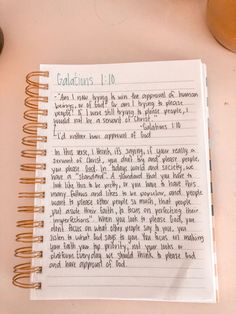 Galatians 1:10
"Am I now trying to win the approval of human
beings, or of God? Or am I trying to please
people? If I were still trying to please people, I
would not be a servant of Christ."
-Galatians 1:10
I'd rather have approval of God
In this verse, I think it's saying, if your really a
servant of Christ, you don't try and please people,
you please God. In todays world and society, we
have a "standard". A standard that you have to
look like this to be pretty, or you have to have this
many follows and likes to be popular, and people
want to please other people so much, that people
put aside their faith, to focus on perfecting their
"imperfections". When you look to please God, you
don't focus on what other people say to you, you
listen to what God says to you. You focus on making
your faith your top priority, not your looks or
platform. Everyday we should think to please God
and have approval of God.